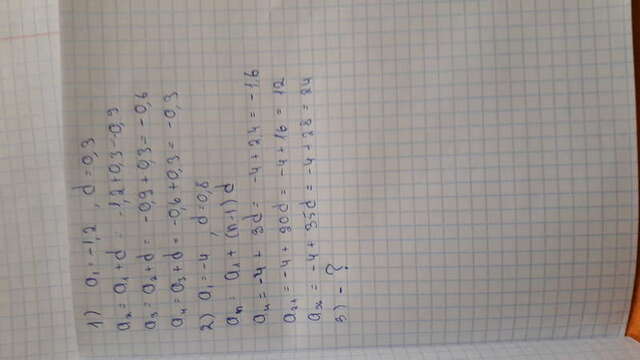 1) a₁ = -1,2 , d = 0,3
a₂ = a₁ + d = -1,2 + 0,3 - 0,9
a₃ = a₂ + d = -0,9 + 0,3 = -0,6
a₄ = a₃ + d = -0,6 + 0,3 = -0,3
2) a₁ = -4 , d = 0,8
aₙ = a₁ + (n-1) d
a₄ = -4 + 3d = -4 + 2,4 = -1,6
a₂₁ = -4 + 20d = -4 + 16 = 12
a₃₆ = -4 + 35d = -4 + 28 = 24
3) - ?